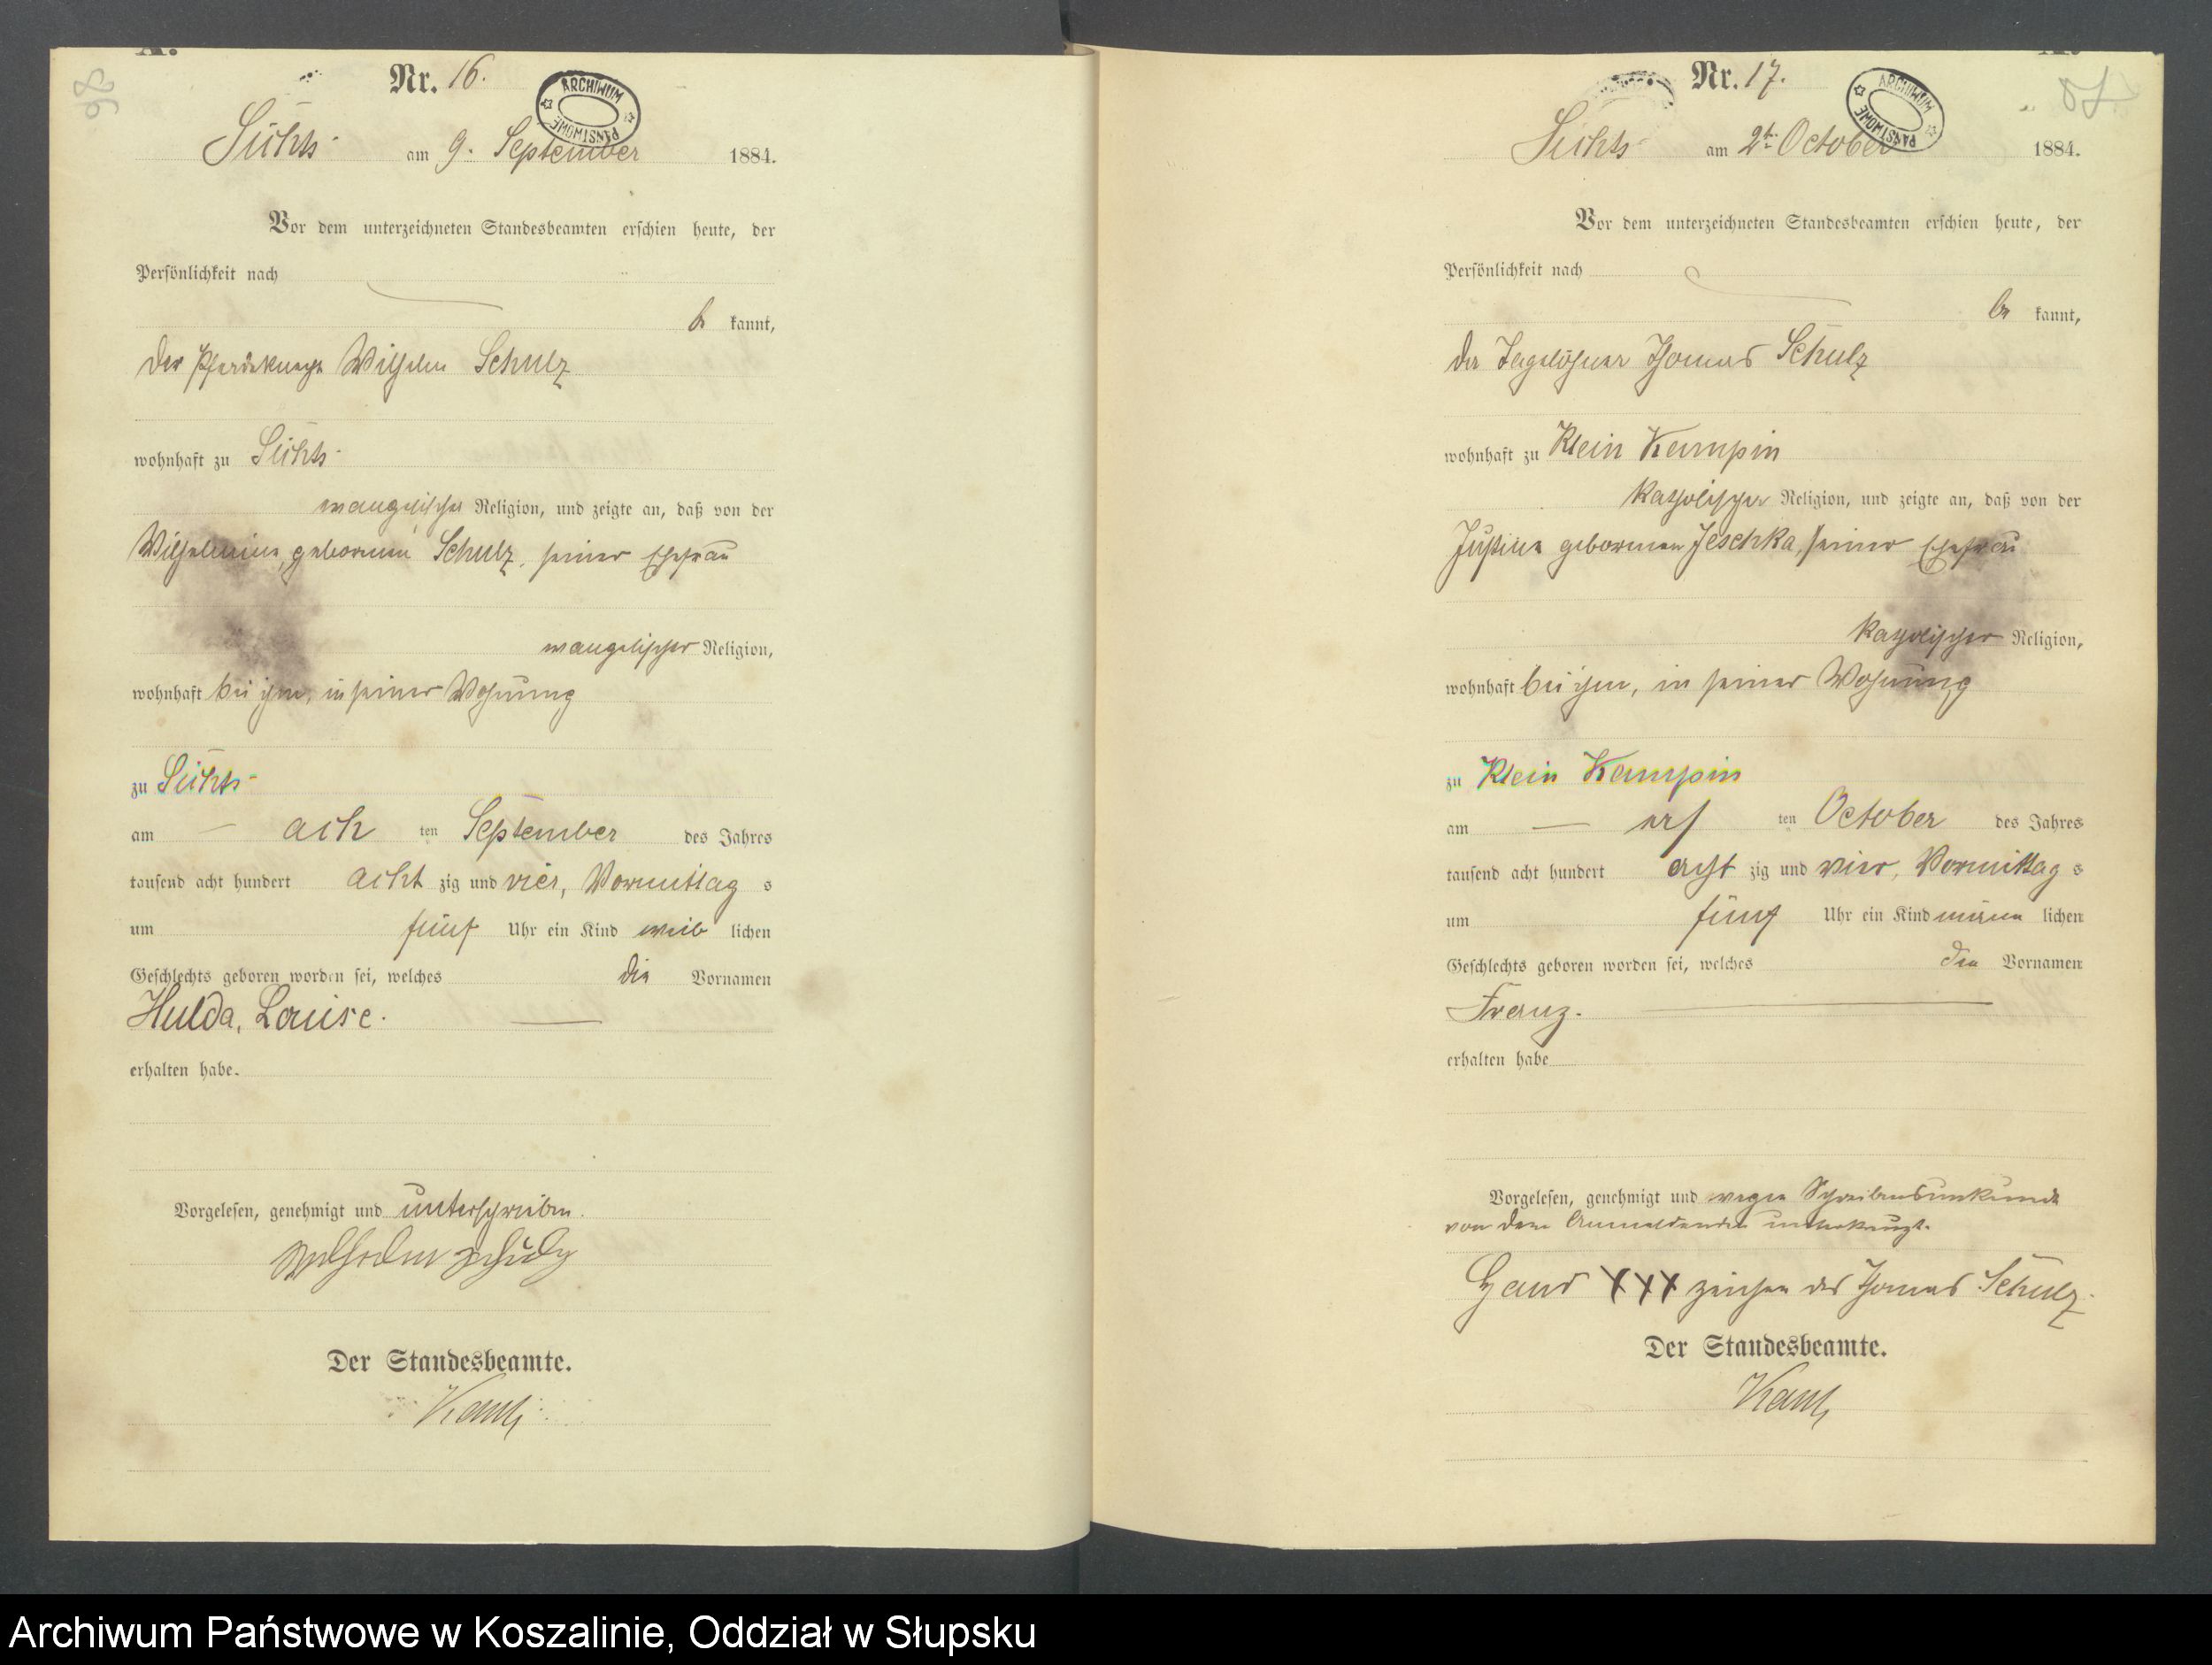 98
Nr. 16.
ARCHIWUM PAŃSTWOWE
am 9. September 1884.
Vor dem unterzeichneten Standesbeamten erschien heute, der
Persönlichkeit nach
be kannt,
der Pferdeknecht Wilhelm Schulz
wohnhaft zu
evangelischer Religion, und zeigte an, daß von der
Wilhelmine, geborenen Schulz, seiner Ehefrau
evangelischer Religion,
wohnhaft bei ihm, in seiner Wohnung
zu
am — ach ten September des Jahres
tausend acht hundert acht zig und vier, Vormittag s
um fünf Uhr ein Kind weib lichen
Geschlechts geboren worden sei, welches die Vornamen
Hulda, Louise.
erhalten habe.
Vorgelesen, genehmigt und unterschrieben.
Wilhelm Schulz
Der Standesbeamte.
Nr. 17.
ARCHIWUM PAŃSTWOWE
am 2ten October 1884.
Vor dem unterzeichneten Standesbeamten erschien heute, der
Persönlichkeit nach
be kannt,
der Tagelöhner Thomas Schulz
wohnhaft zu Klein Kampin
katholischer Religion, und zeigte an, daß von der
Justine geborenen Jeschka, seiner Ehefrau
katholischer Religion,
wohnhaft bei ihm, in seiner Wohnung
zu Klein Kampin
am — ers ten October des Jahres
tausend acht hundert acht zig und vier, Vormittag s
um fünf Uhr ein Kind männ lichen
Geschlechts geboren worden sei, welches den Vornamen
Franz.
erhalten habe
Vorgelesen, genehmigt und wegen Schreibensunkunde
von dem Anmeldenden unterkreuzt.
Hand XXX zeichen des Thomas Schulz.
Der Standesbeamte.
Archiwum Państwowe w Koszalinie, Oddział w Słupsku